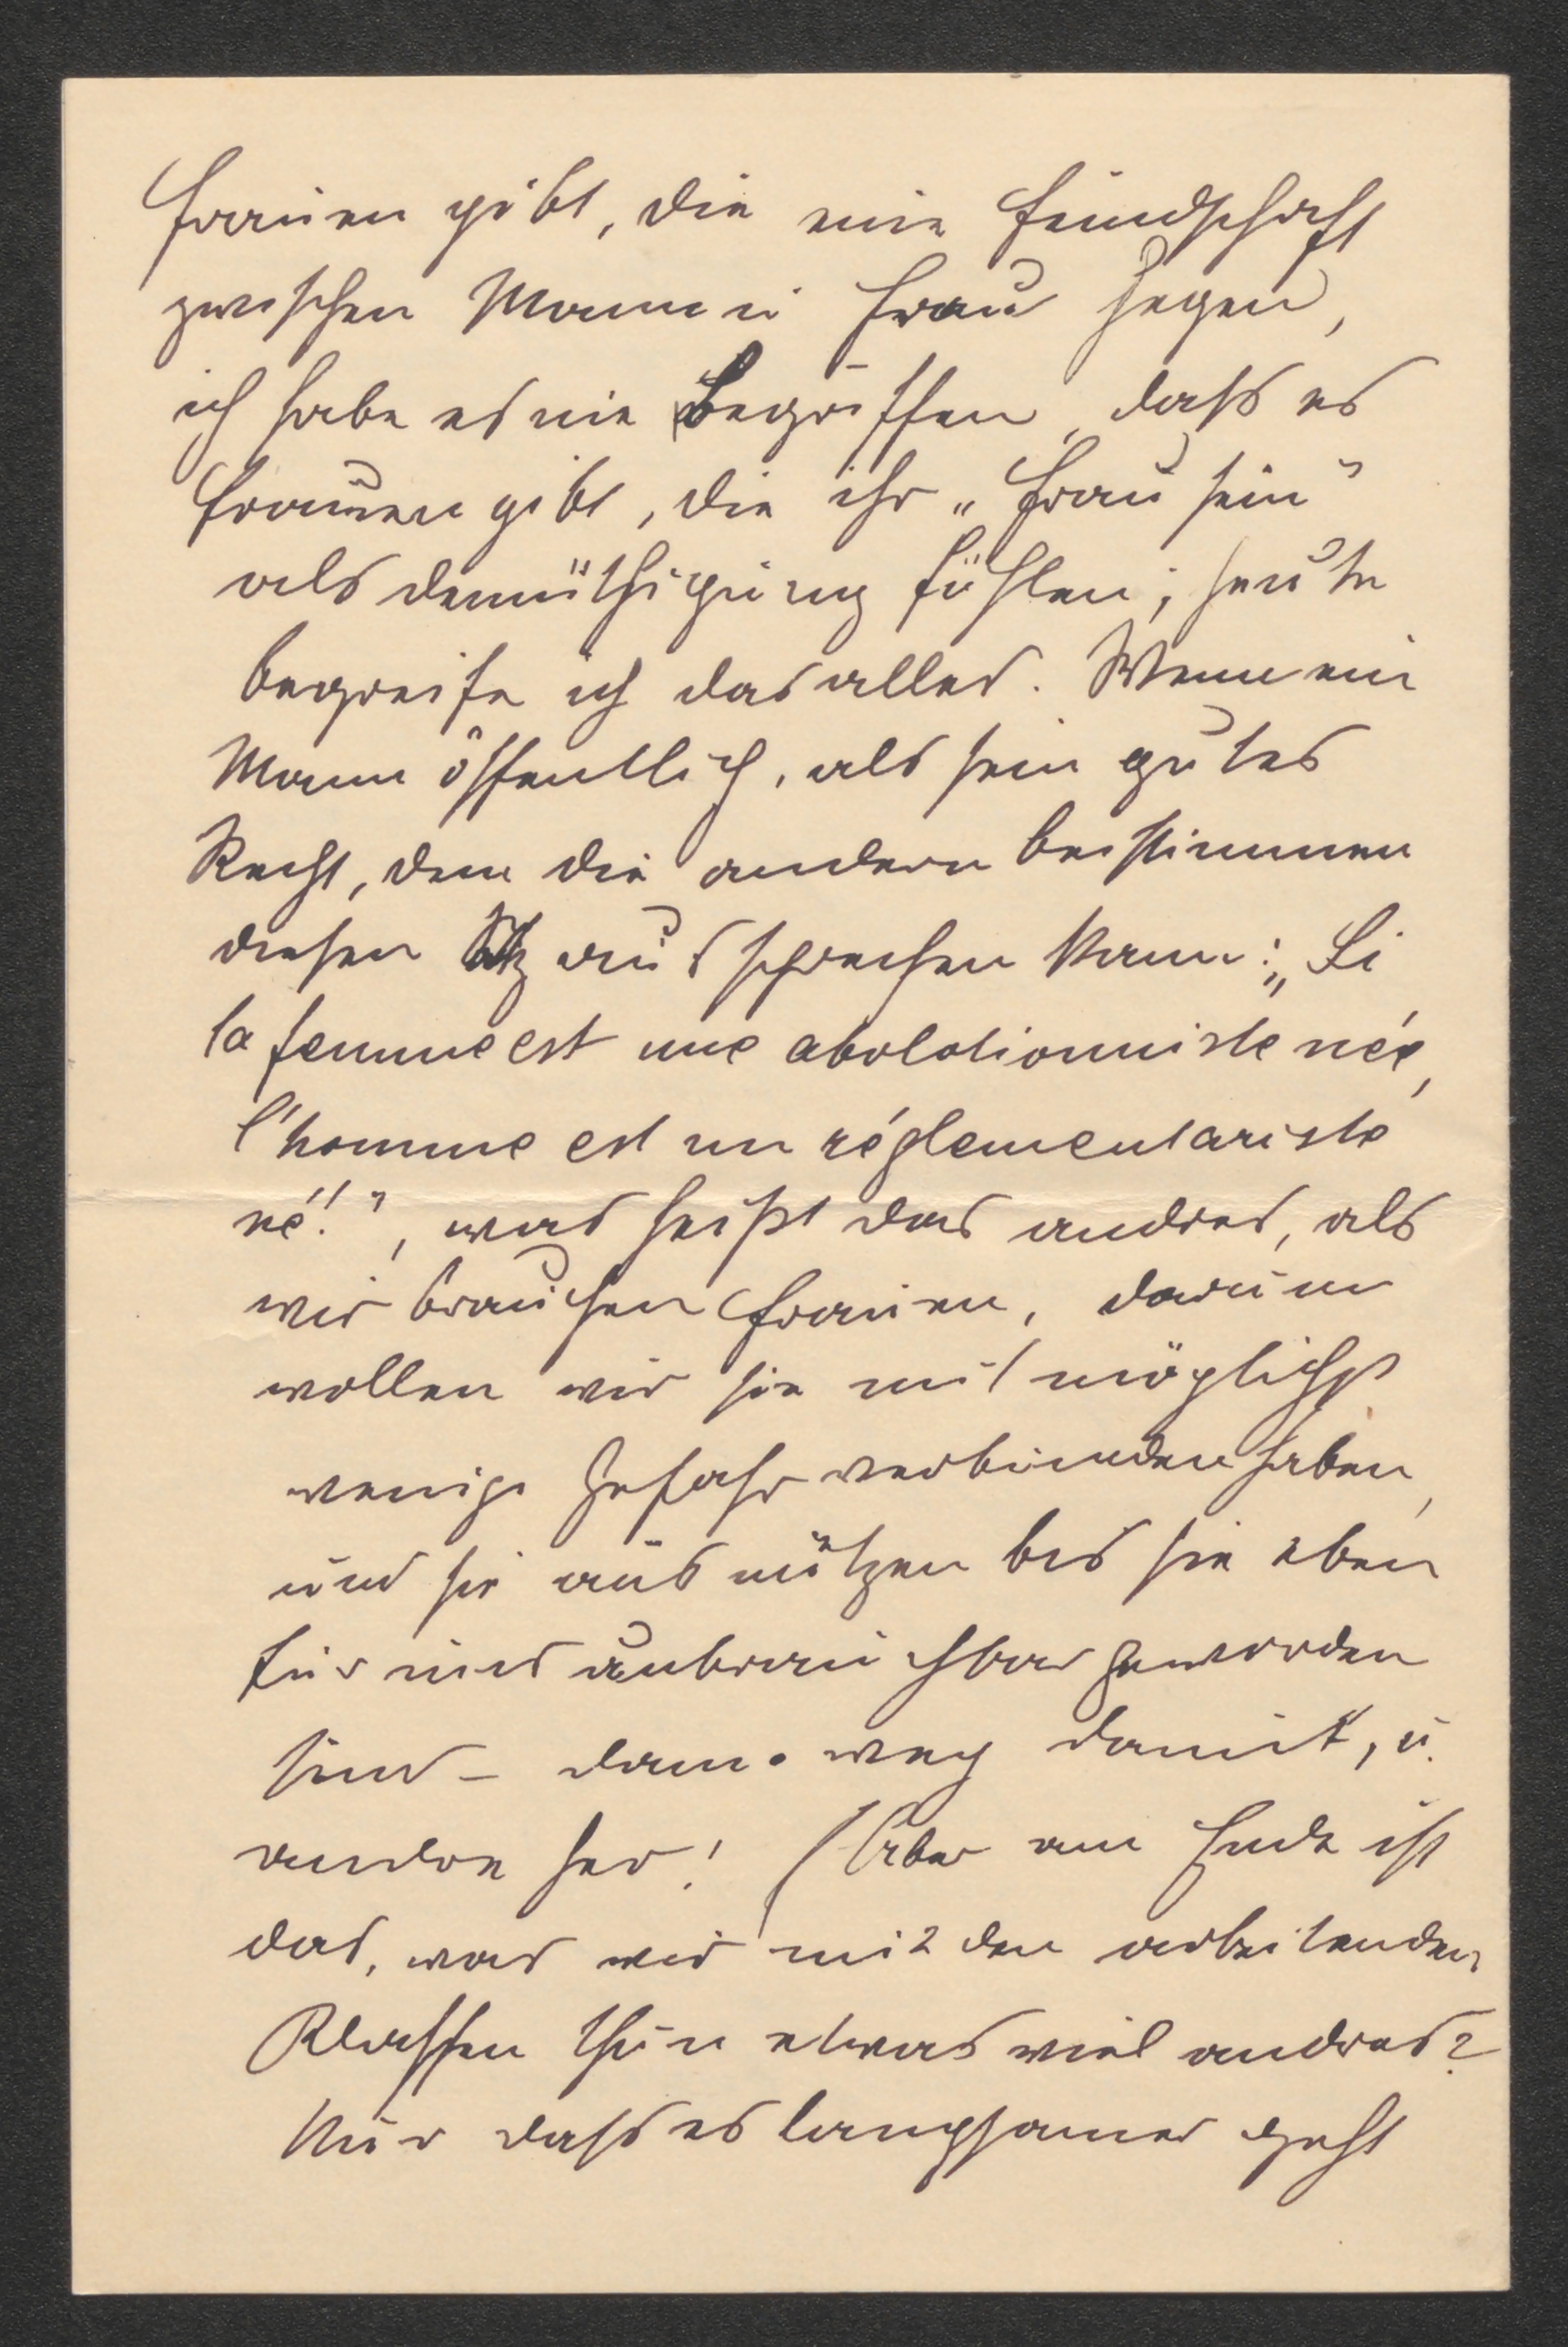 Frauen gibt, die eine Feindschaft
zwischen Mann u Frau hegen,
ich habe es nie begriffen, dass es
Frauen gibt, die ihr „Frau sein"
als demüthigung fühlen; heute
begreife ich das alles. Wenn ein
Mann öffentlich, als sein gutes
Recht, dem die andern beistimmen
diesen Satz aussprechen kann: „Si
la femme est une abolotionniste née,
l'homme est un réglementariste
né!", was heißt das andres, als
wir brauchen Frauen, darum
wollen wir sie mit möglichst
wenige Gefahr verbunden haben,
und sie ausnützen bis sie eben
für uns unbrauchbar geworden
sind – dann weg damit, u.
andre her! Aber am Ende ist
das, was wir mit den arbeitenden
Klassen thun etwas viel andres?
Nur dass es langsamer geht